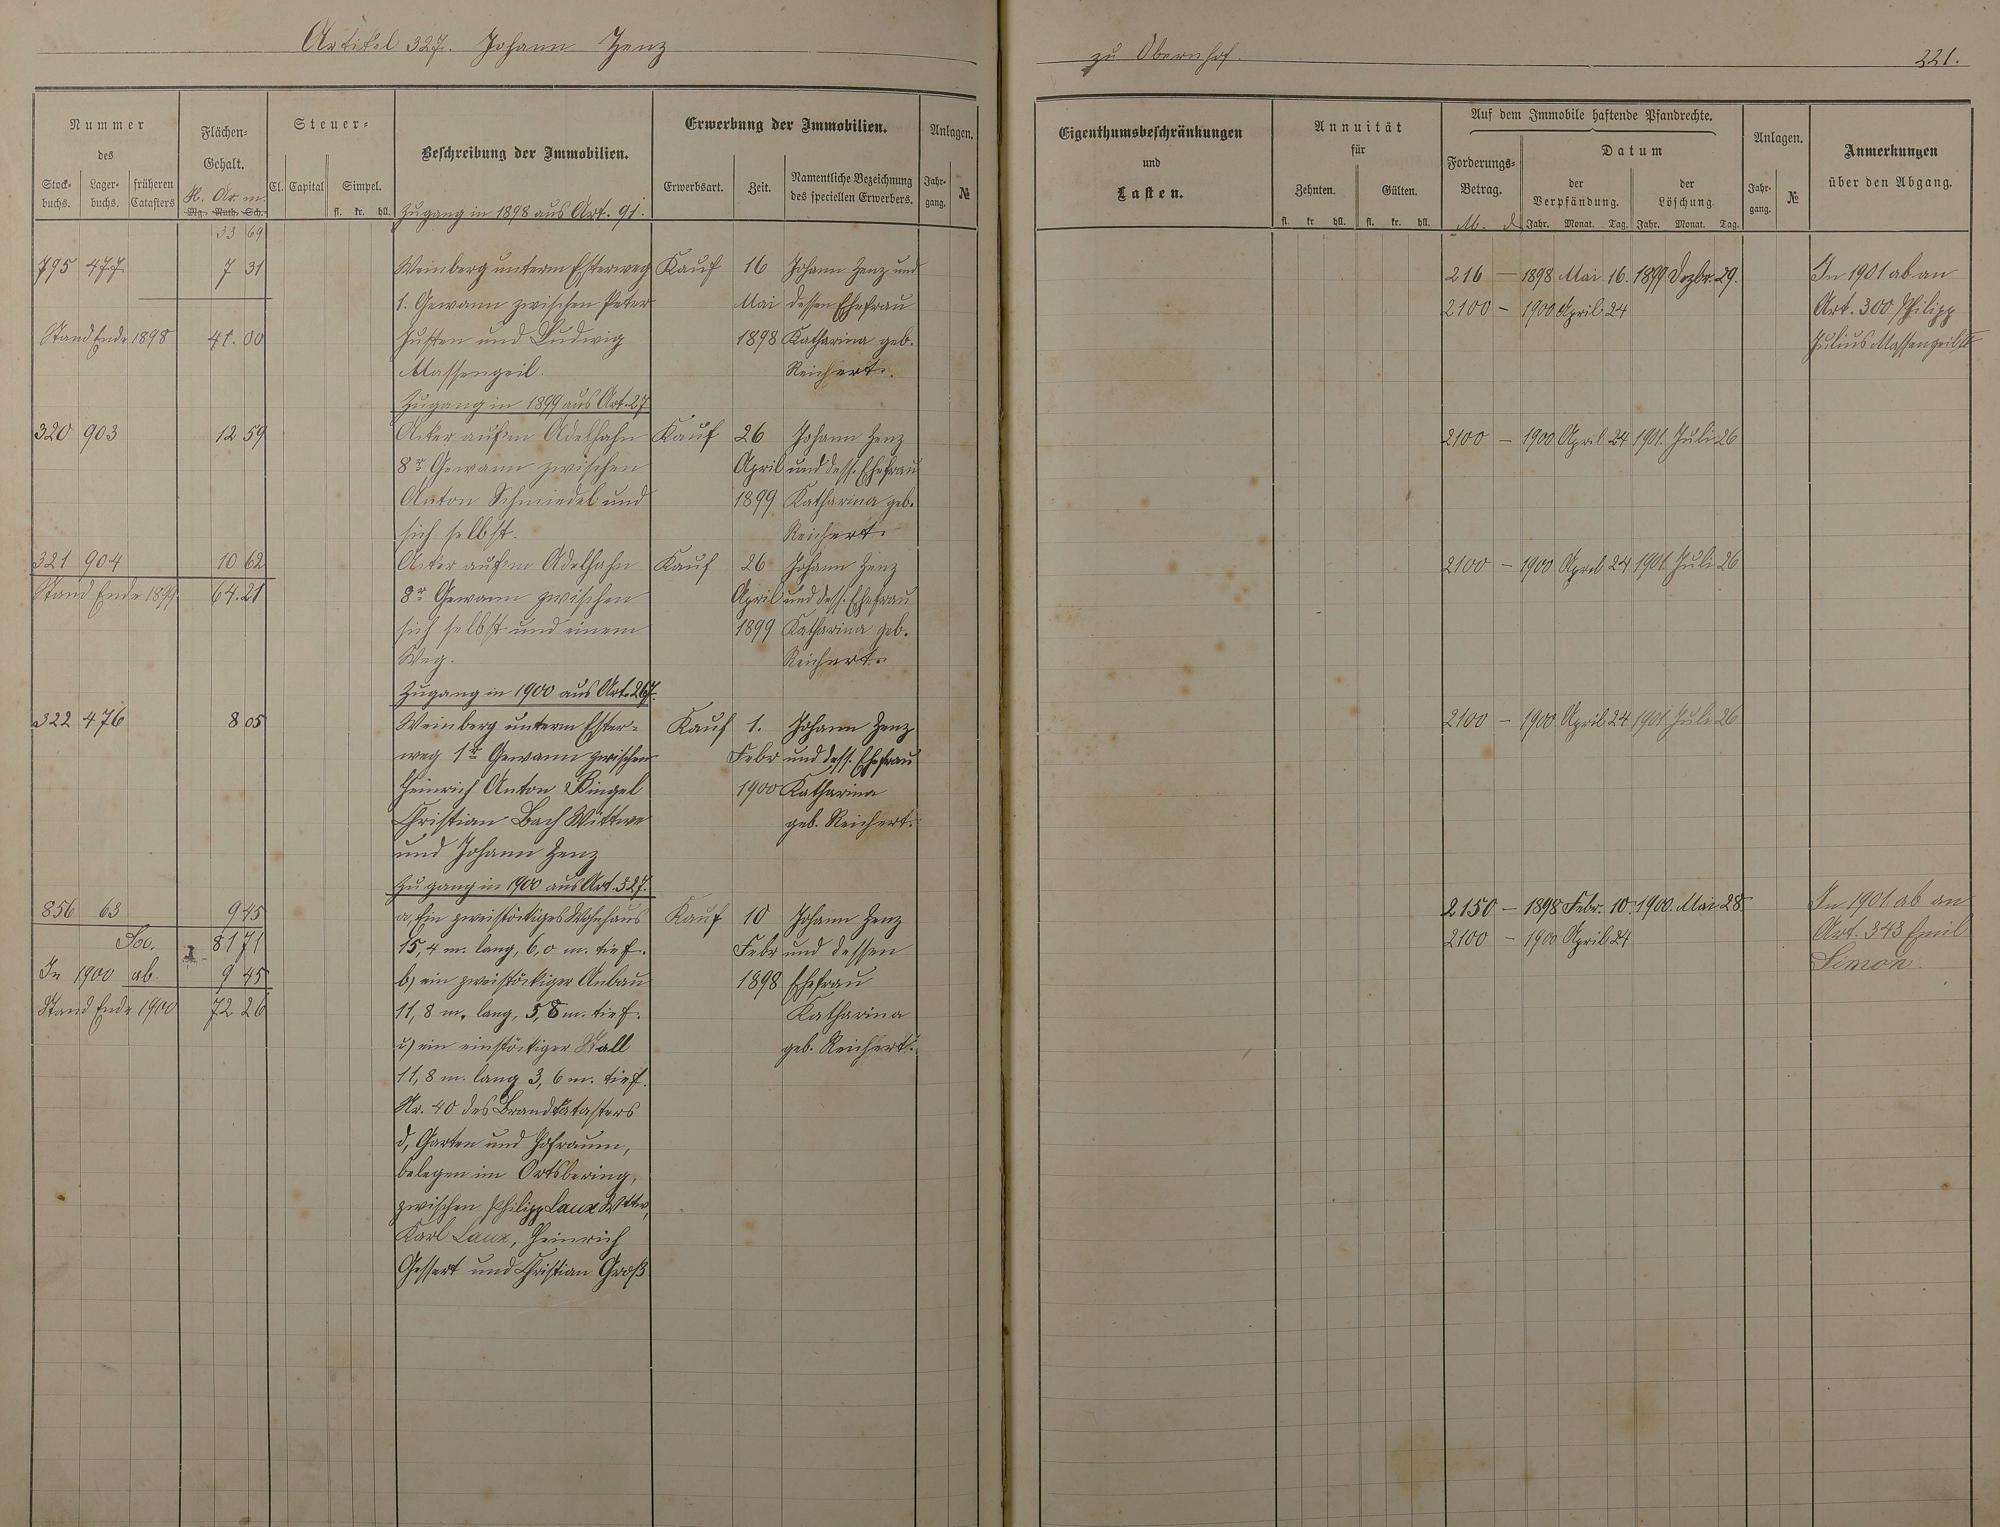 Artikel 327. Johann Zenz
zu Obernhof.
221.
Nummer
des
Stock-
buchs.
Lager-
buchs.
früheren
Catasters
Flächen-
Gehalt.
H. Ar. m.
Mg. Ruth. Sch.
Steuer-
Cl. Capital
Simpel.
fl. kr. hll.
Beschreibung der Immobilien.
Erwerbung der Immobilien.
Erwerbsart.
Zeit.
Namentliche Bezeichnung
des speciellen Erwerbers.
Anlagen.
Jahr-
gang.
№
Eigenthumsbeschränkungen
und
Lasten.
Annuität
für
Zehnten.
Gülten.
fl. kr. hll.
fl. kr. hll.
Auf dem Immobile haftende Pfandrechte.
Forderungs-
Betrag.
M. d
Datum
der
Verpfändung.
der
Löschung.
Jahr. Monat. Tag.
Jahr. Monat. Tag.
Anlagen.
Jahr-
gang.
№
Anmerkungen
über den Abgang.
Zugang in 1898 aus Art. 91.
33 69
795 477 7 31 Weinberg unterm Esterweg Kauf 16 Johann Zenz und 216 — 1898 Mai 16. 1899 Dezbr. 29. In 1901 ab an
1. Gewann zwischen Peter Mai dessen Ehefrau 2100 — 1900 April 24 Art. 300 Philipp
Stand Ende 1898 41.00 Justen und Ludwig 1898 Katharina geb. Julius Massengeil
Massengeil. Reichert.
Zugang in 1899 aus Art. 27
320 903 12 59 Acker auf'm Adelhahn Kauf 26 Johann Zenz 2100 — 1900 April 24 1901 Juli 26
8r Gewann zwischen April und dess. Ehefrau
Anton Schmiedel und 1899 Katharina geb.
sich selbst. Reichert.
321 904 10 62 Acker auf'm Adelhahn Kauf 26 Johann Zenz 2100 — 1900 April 24 1901 Juli 26
Stand Ende 1899 64.21 8r Gewann zwischen April und dess. Ehefrau
sich selbst und einem 1899 Katharina geb.
Weg. Reichert.
Zugang in 1900 aus Art. 267.
322 476 8 05 Weinberg unterm Ester- Kauf 1. Johann Zenz 2100 — 1900 April 24 1901 Juli 26
weg 1r Gewann zwischen Febr und dess. Ehefrau
Heinrich Anton Bingel 1900 Katharina
Christian Bach Wittwe geb. Reichert.
und Johann Zenz
Zugang in 1900 aus Art. 327.
856 63 9 45 a, Ein zweistöckiges Wohnhaus Kauf 10 Johann Zenz 2150 — 1898 Febr. 10. 1900 Mai 28. In 1901 ab an
81 71 15,4 m. lang, 6,0 m. tief. Febr und dessen 2100 — 1900 April 24 Art. 343 Emil
In 1900 ab 9 45 b, ein zweistöckiger Anbau 1898 Ehefrau Simon.
Stand Ende 1900 72 26 11,8 m. lang, 5,8 m. tief. Katharina
c) ein einstöckiger Stall geb. Reichert.
11,8 m. lang 3,6 m. tief.
Nr. 40 des Brandkatasters
d, Garten und Hofraum,
belegen im Ortsbering,
zwischen Philipp Laux Wttw,
Karl Laux, Heinrich
Gessert und Christian Groß